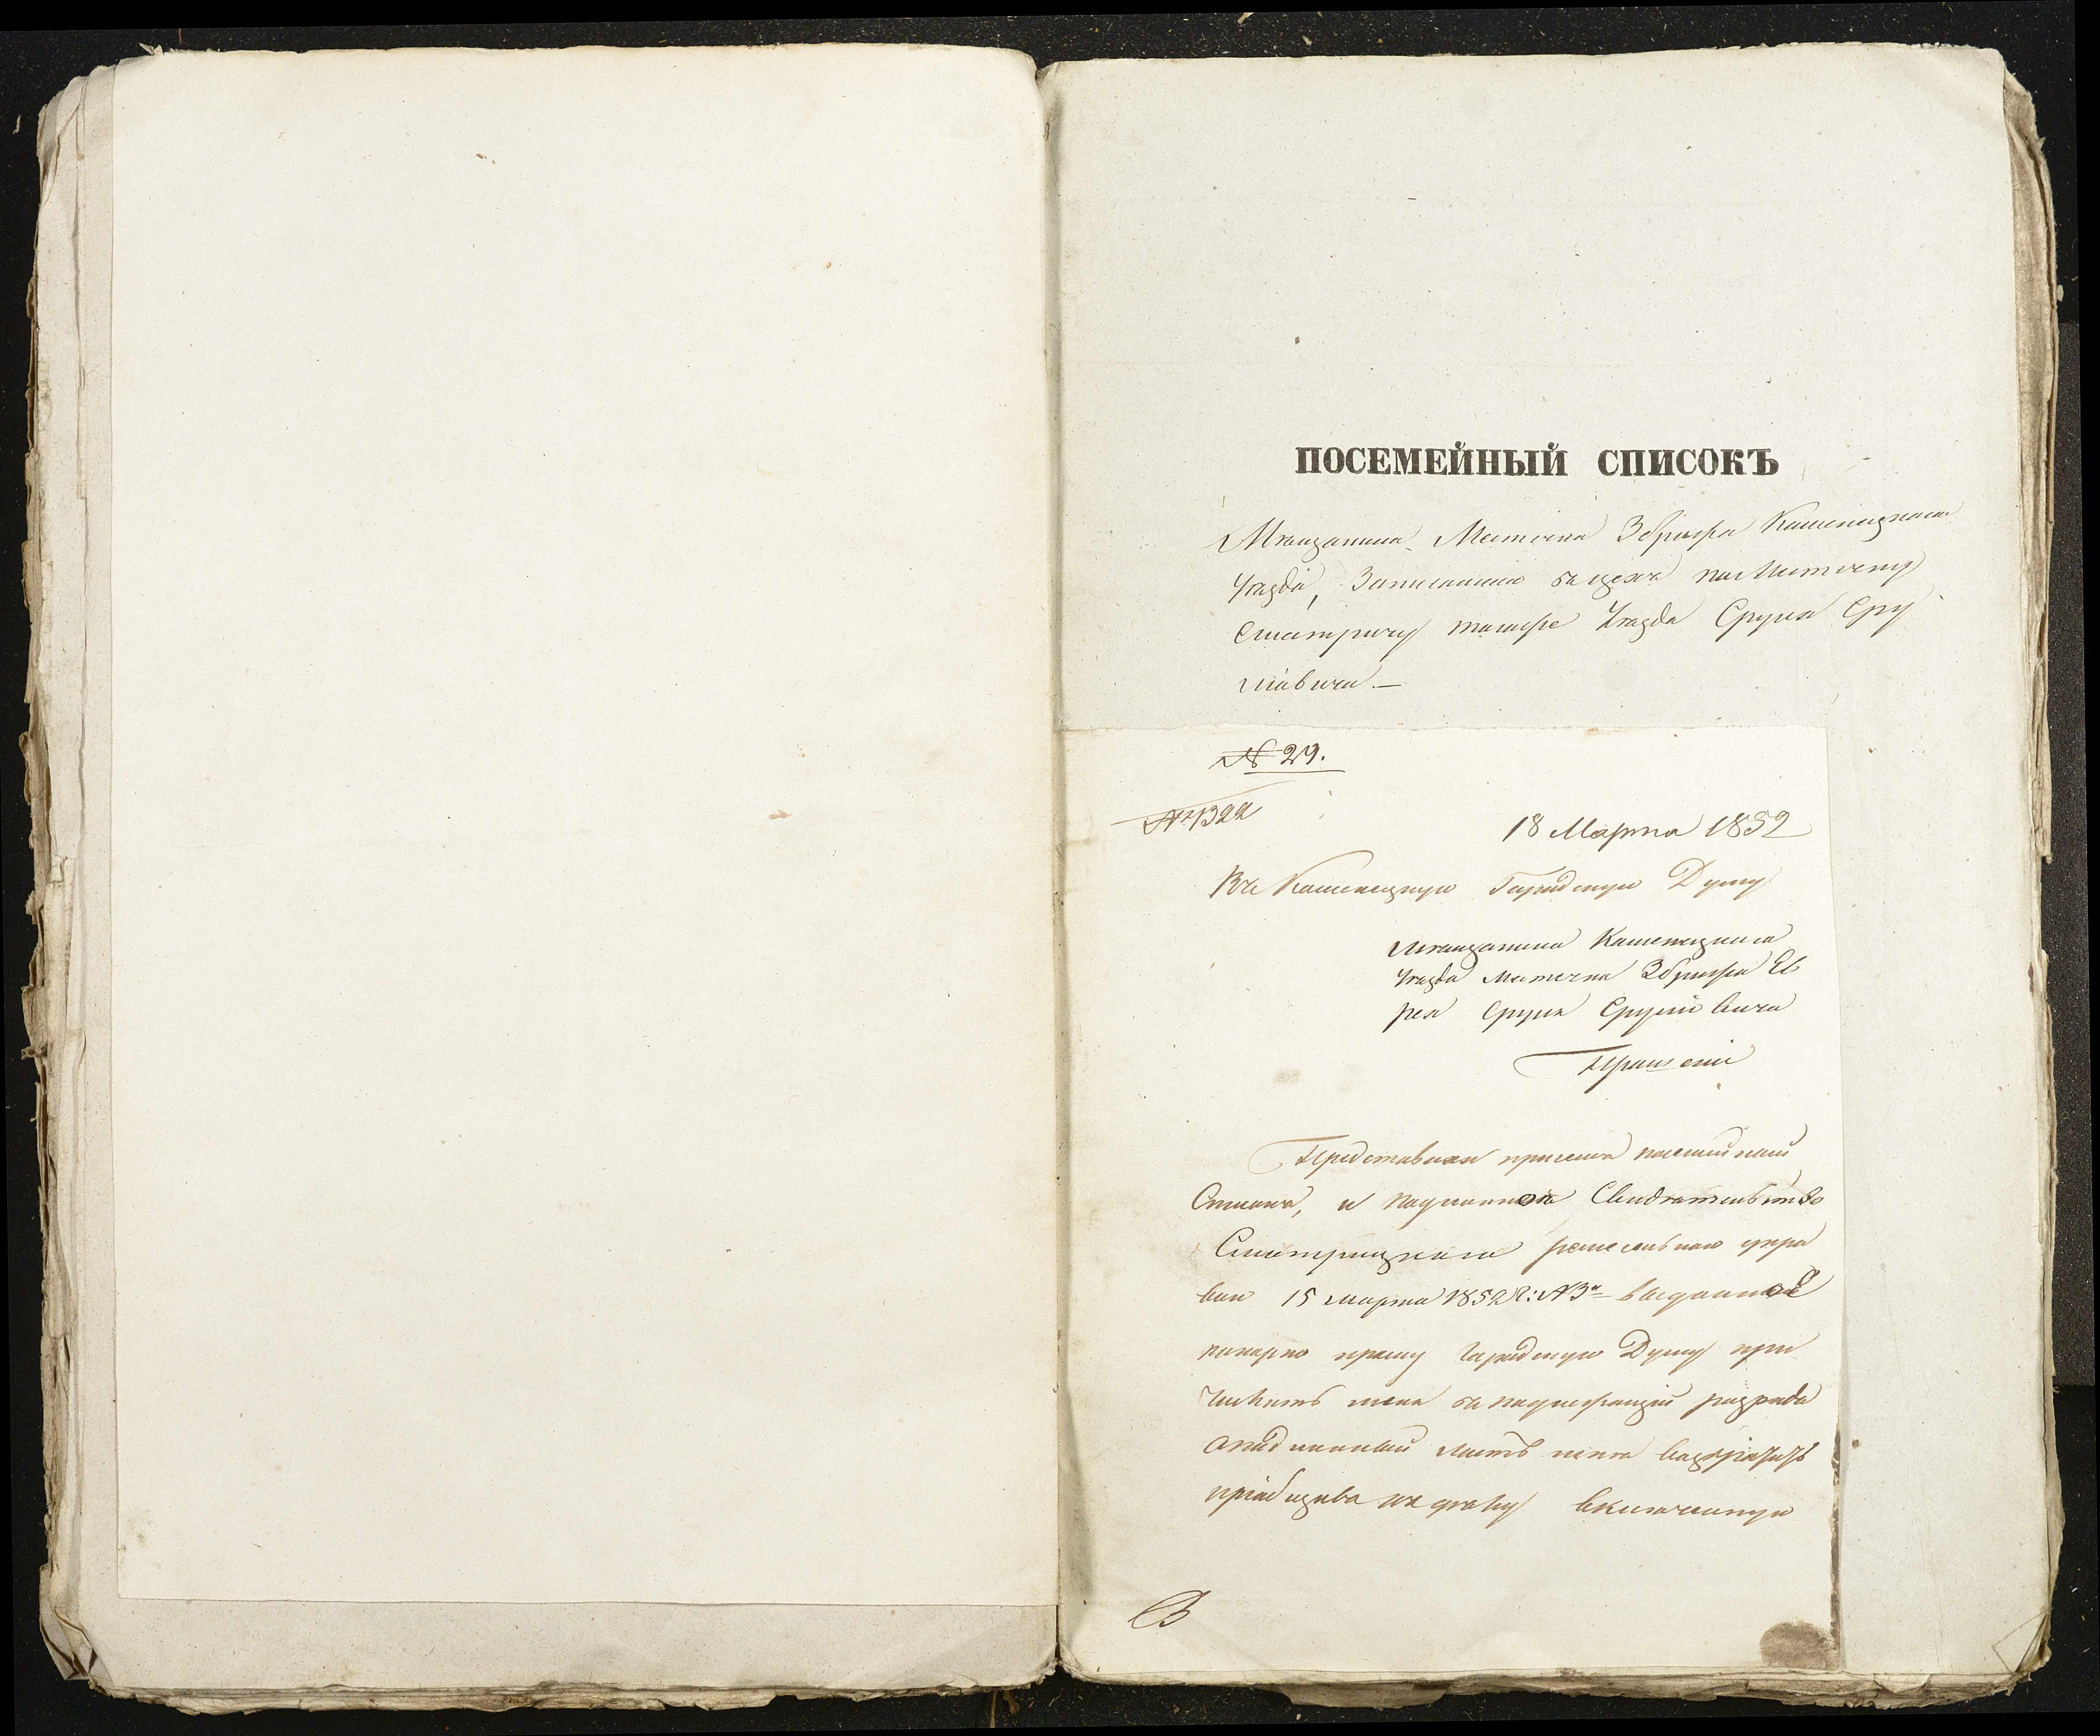 ПОСЕМЕЙНЫЙ СПИСОКЪ
Мѣщанина Местечка Збрижа Каменецкаго
Уѣзда, Записаннаго въ цехъ по Местечку
Смотричу того же Уѣзда Сруля Сру
лiовича —
№ 29.
№ 1322
18 Марта 1852
Въ Каменецкую Городскую Думу
Мѣщанина Каменецкаго
Уѣзда местечка Збрижа Ев
рея Сруля Срулiовича
Прошенiе
Представляя при семъ посемейный
Списокъ, и подлинное Свидѣтельство
Смотрицкаго ремесльной упра
вы 15 марта 1852 г: № 3й выданное
покорно прошу Городскую Думу при
числить меня въ надлежащiй разрядъ
включенную